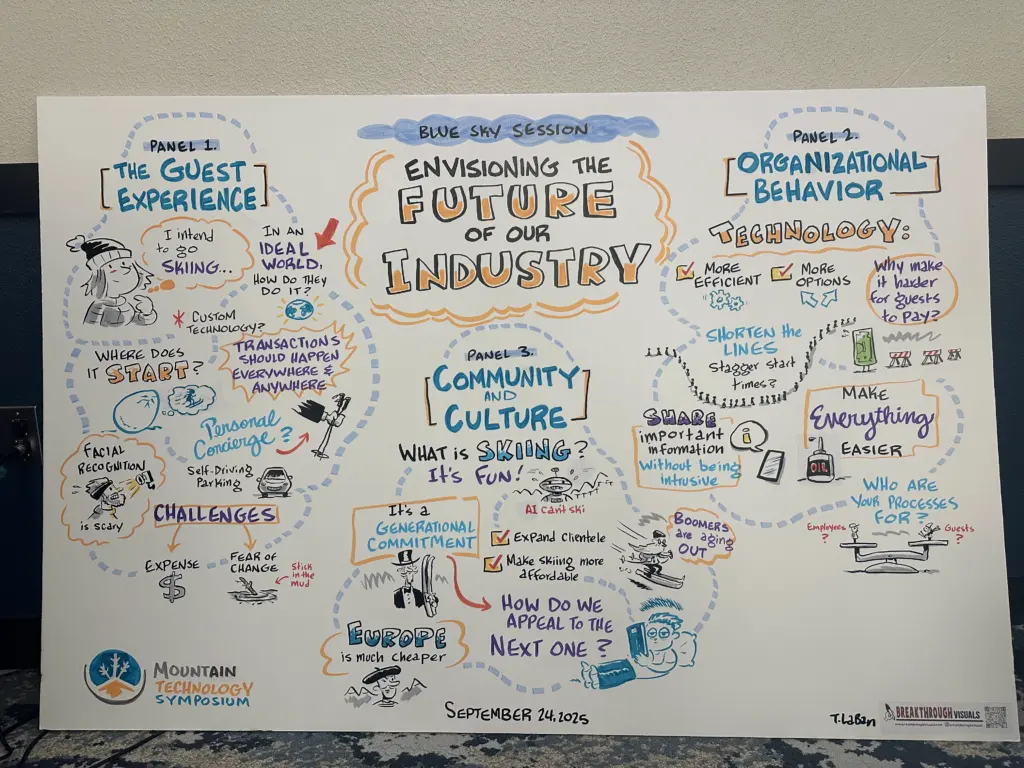 BLUE SKY SESSION
ENVISIONING THE
FUTURE
OF OUR
INDUSTRY
PANEL 1.
THE GUEST
EXPERIENCE
I intend
to go
SKIING...
IN AN
IDEAL
WORLD,
HOW DO THEY
DO IT?
* CUSTOM
TECHNOLOGY?
WHERE DOES
IT START?
TRANSACTIONS
SHOULD HAPPEN
EVERYWHERE &
ANYWHERE
Personal
Concierge?
Self-Driving
Parking
FACIAL
RECOGNITION
is scary
CHALLENGES
EXPENSE
$
FEAR OF
CHANGE
Stick
in the
mud
PANEL 2.
ORGANIZATIONAL
BEHAVIOR
TECHNOLOGY:
MORE
EFFICIENT
MORE
OPTIONS
Why make
it harder
for guests
to pay?
SHORTEN the
LINES
Stagger start
times?
SHARE
important
information
Without being
intrusive
i
MAKE
Everything
EASIER
OIL
WHO ARE
YOUR PROCESSES
FOR?
Employees
?
Guests
?
PANEL 3.
COMMUNITY
AND
CULTURE
WHAT IS SKIING?
It's FUN!
AI can't ski
It's a
GENERATIONAL
COMMITMENT
Expand clientele
Make skiing more
affordable
BOOMERS
are aging
OUT
HOW DO WE
APPEAL TO THE
NEXT ONE?
EUROPE
is much cheaper
MOUNTAIN
TECHNOLOGY
SYMPOSIUM
SEPTEMBER 24, 2025
T. LaBan
BREAKTHROUGH VISUALS